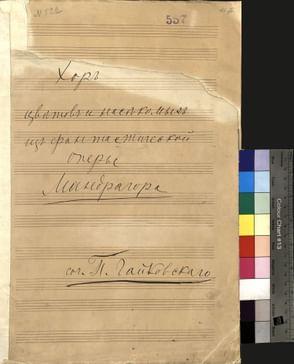 № 522
557
Хоръ
цвѣтовъ и насѣкомыхъ
изъ фантастической
оперы
Мандрагора
соч. П. Чайковскаго
Colour Chart #13